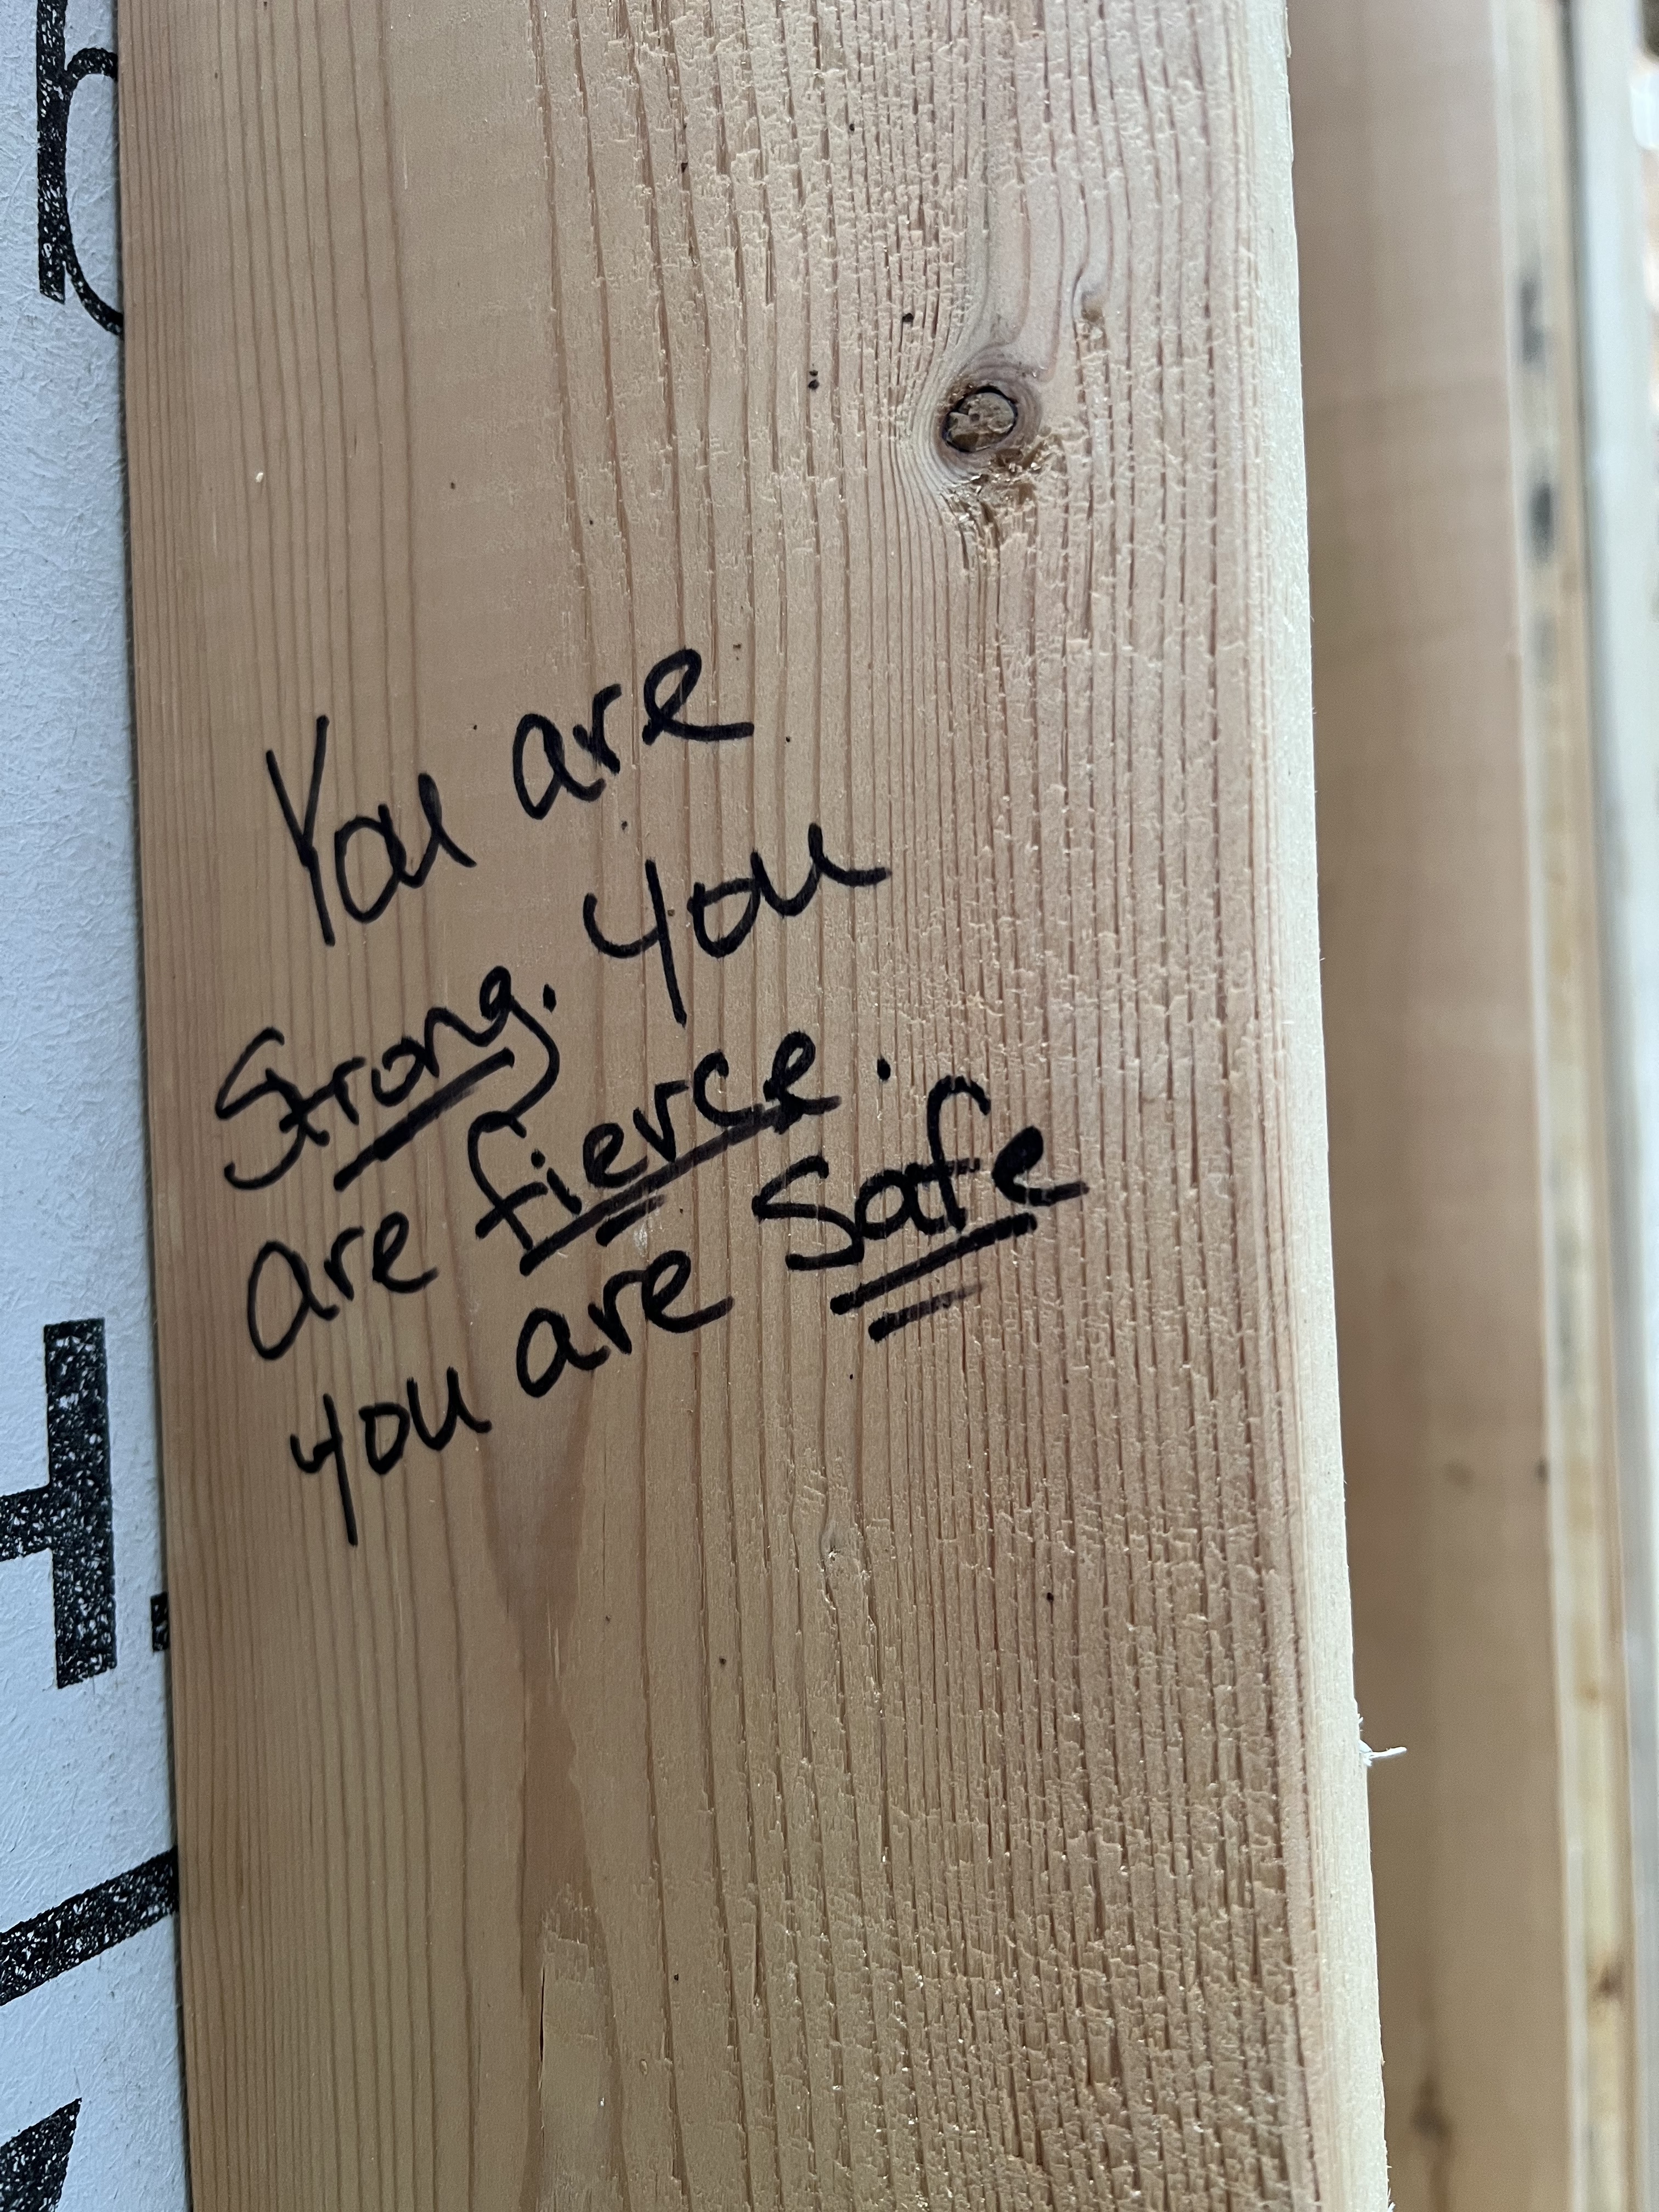 You are
Strong. you
are fierce.
you are safe